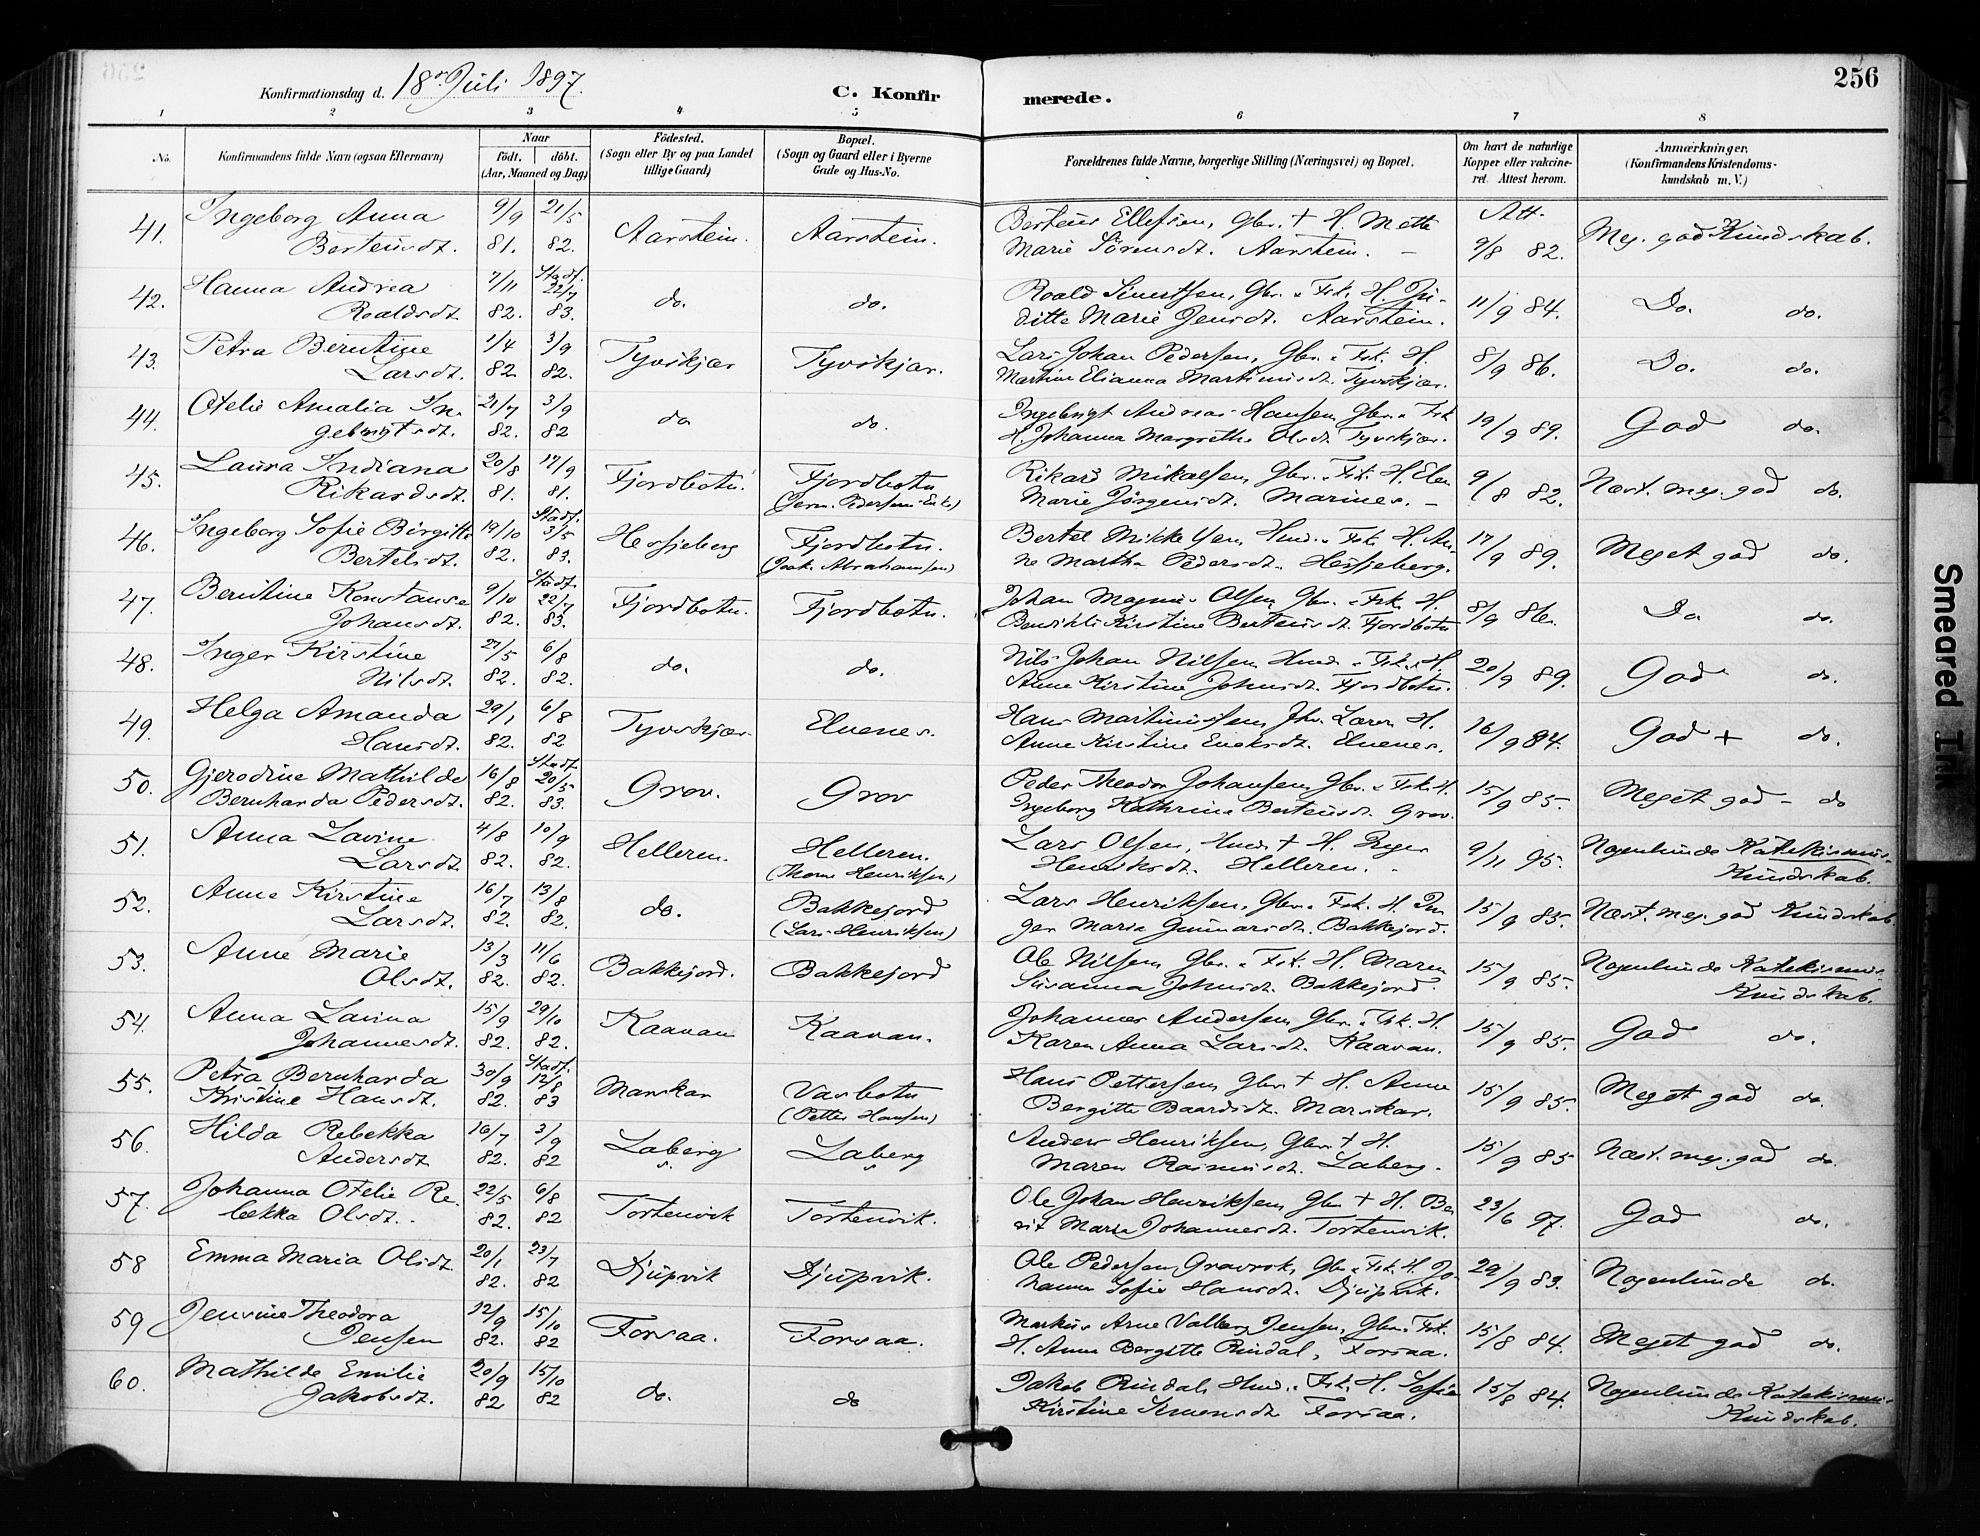 256
Konfirmationsdag d. 18de Juli 1897.
C. Konfirmerede.
1 2 3 4 5 6 7 8
No.
Konfirmandens fulde Navn (ogsaa Efternavn)
Naar
födt. döbt.
(Aar, Maaned og Dag)
Födested.
(Sogn eller By og paa Landet
tillige Gaard)
Bopæl.
(Sogn og Gaard eller i Byerne
Gade og Hus-No.
Forældrenes fulde Navne, borgerlige Stilling (Næringsvei) og Bopæl.
Om havt de naturlige
Kopper eller vakcine-
ret. Attest herom.
Anmærkninger,
(Konfirmandens Kristendoms-
kundskab m. V.)
41. Ingeborg Anna 9/9 21/5 Aarstein. Aarstein. Berteus Ellefsen, Gbr. + H. Mette Att. Meg. god Kundskab.
Berteusdt. 81. 82. Marie Sörensdt. Aarstein. – 9/8 82.
42. Hanna Andrea 7/11 Stadf. 22/7 do. do. Roald Sivertsen, Gbr. & Fsk. H. Ju- 11/9 84. Do. do.
Roaldsdt. 82. 83. ditte Marie Jensdt. Aarstein.
43. Petra Berntine 1/4 3/9 Tyvskjær Tyvskjær. Lars Johan Pedersen, Gbr. & Fsk. H. 8/9 86. Do. do.
Larsdt. 82 82. Martine Elianna Martinusdt. Tyvskjær.
44. Otelie Amalia In- 21/7 3/9 do do. Ingebrigt Andreas Hansen, Gbr. & Fsk 19/9 89. God do.
gebrigtsdt. 82. 82 H. Johanna Margrethe Olsdt. Tyvskjær.
45. Laura Indiana 20/8 17/9 Fjordbotn. Fjordbotn Rikard Mikalsen, Gbr. & Fsk. H. Elen 9/8 82. Næst. meg. god do.
Rikardsdt. 81. 81. (Jern. Pedersens Enke) Marie Jörgensdt. Marines. –
46. Ingeborg Sofie Birgitte 19/10 Stadf. 3/5 Hessjeberg Fjordbotn. Bertel Mikkelsen, Hmd. & Fsk. H. An- 17/9 89. Meget god do.
Bertelsdt. 82. 83. (Joak. Abrahamsen) ne Martha Pedersdt. Hessjeberg.
47. Berntine Konstanse 9/10 Stadf. 22/7 Fjordbotn. Fjordbotn. Johan Magnus Olsen, Gbr. & Fsk. H. 8/9 86. Do do.
Johansdt. 82. 83. Bendikte Kirstine Berteusdt. Fjordbotn
48. Inger Kirstine 27/5 6/8 do. do. Nils Johan Nilsen, Hmd. & Fsk. & H. 20/9 89. God do.
Nilsdt. 82. 82. Anne Kirstine Johnsdt. Fjordbotn.
49. Helga Amanda 29/1 6/8 Tyvskjær Elvenes. Hans Martinussen, Fhv. Lærer H. 16/9 84. God + do.
Hansdt. 82. 82 Anne Kirstine Eneksdt. Elvenes.
50. Gjerodine Mathilde 16/8 Stadf. 20/5 Grov. Grov Peder Theodor Johansen, Gbr. & Fsk. H. 15/9 85. Meget god – do
Bernharda Pedersdt. 82. 83. Ingeborg Kathrina Berteusdt. Grov.
51. Anna Lavine 4/8 10/9 Helleren. Helleren. Lars Olsen, Hmd. + H. Inger 9/11 95. Nogenlunde Katekismus-
Larsdt 82. 82. (Thom. Henriksen) Henriksdt. Helleren. Kundskab.
52. Anne Kirstine 16/7 13/8 do. Bakkejord Lars Henriksen, Gbr. & Fsk. H. In- 15/9 85. Næst. meg. god Kundskab
Larsdt. 82. 82. (Lars Henriksen) ger Maria Gunnarsdt. Bakkejord.
53. Anne Marie 13/3 11/6 Bakkejord. Bakkejord Ole Nilsen, Gbr. & Fsk. H. Maren 15/9 85. Nogenlunde Katekismus
Olsdt. 82. 82. Susanna Johnsdt. Bakkejord. Kundskab.
54. Anna Lavina 15/9 29/10 Kaavan Kaavan. Johannes Andersen, Gbr. & Fsk. H. 15/9 85. God do.
Johannesdt. 82. 82. Karen Anna Larsdt. Kaavan.
55. Petra Bernharda 30/9 Stadf. 12/8 Marskar Vasbotn Hans Pettersen, Gbr. + H. Anne 15/9 85. Meget god do.
Kristine Hansdt. 82. 83 (Petter Hansen) Bergitte Baardsdt. Marskar.
56. Hilda Rebekka 16/7 3/9 Laberg Laberg Anders Henriksen, Gbr. + H. 15/9 85 Næst. meg. god do.
Andersdt 82. 82 Maren Rasmusdt. Laberg.
57. Johanna Otelie Re- 22/5 6/8 Tortenvik Tortenvik. Ole Johan Henriksen, Gbr. + H. Be- 23/6 97. God do.
bekka Olsdt. 82. 82 rit Maria Johannesdt. Tortenvik.
58 Emma Maria Olsdt 20/1 23/7 Djupvik Djupvik. Ole Pedersen Gravrok, Gbr. & Fsk. H. Jo- 29/9 83. Nogenlunde do.
82. 82 hanna Sofie Hansdt. Djupvik.
59 Jensine Theodora 12/9 15/10 Forsaa. Forsaa. Markus Arne Valberg Jensen, Gbr. & Fsk. 15/8 84. Meget god do.
Jensen 82. 82 H. Anne Bergitte Rindal, Forsaa.
60. Mathilde Emilie 20/9 15/10 do. do Jakob Rindal, Hmd. & Fsk. H. Sofie 15/8 84. Nogenlunde Katekismus-
Jakobsdt. 82 82 Kirstine Simonsdt Forsaa. Kundskab.
Smeared Ink